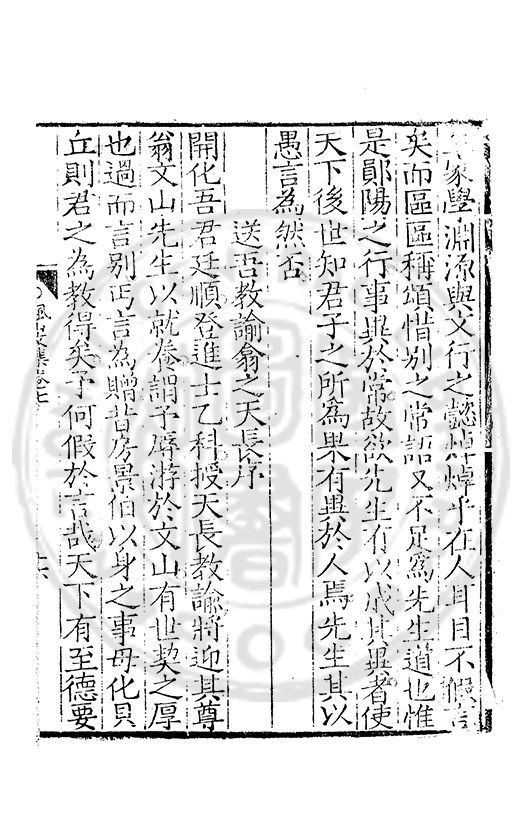 家學淵源與文行之懿焯焯乎在人耳目不假言
矣而區區稱頌惜別之常語又不足爲先生道也惟
是鄖陽之行事異於常故欲先生有以成其異者使
天下後世知君子之所爲果有異於人焉先生其以
愚言為然否
送吾教諭翁之天長序
開化吾君廷順登進士乙科授天長教諭將迎其尊
翁文山先生以就養謂予辱游於文山有世契之厚
也過而言別丐言為贈昔房景伯以身之事母化貝
丘則君之為教得矣予何假於言哉天下有至德要
集卷七
十六